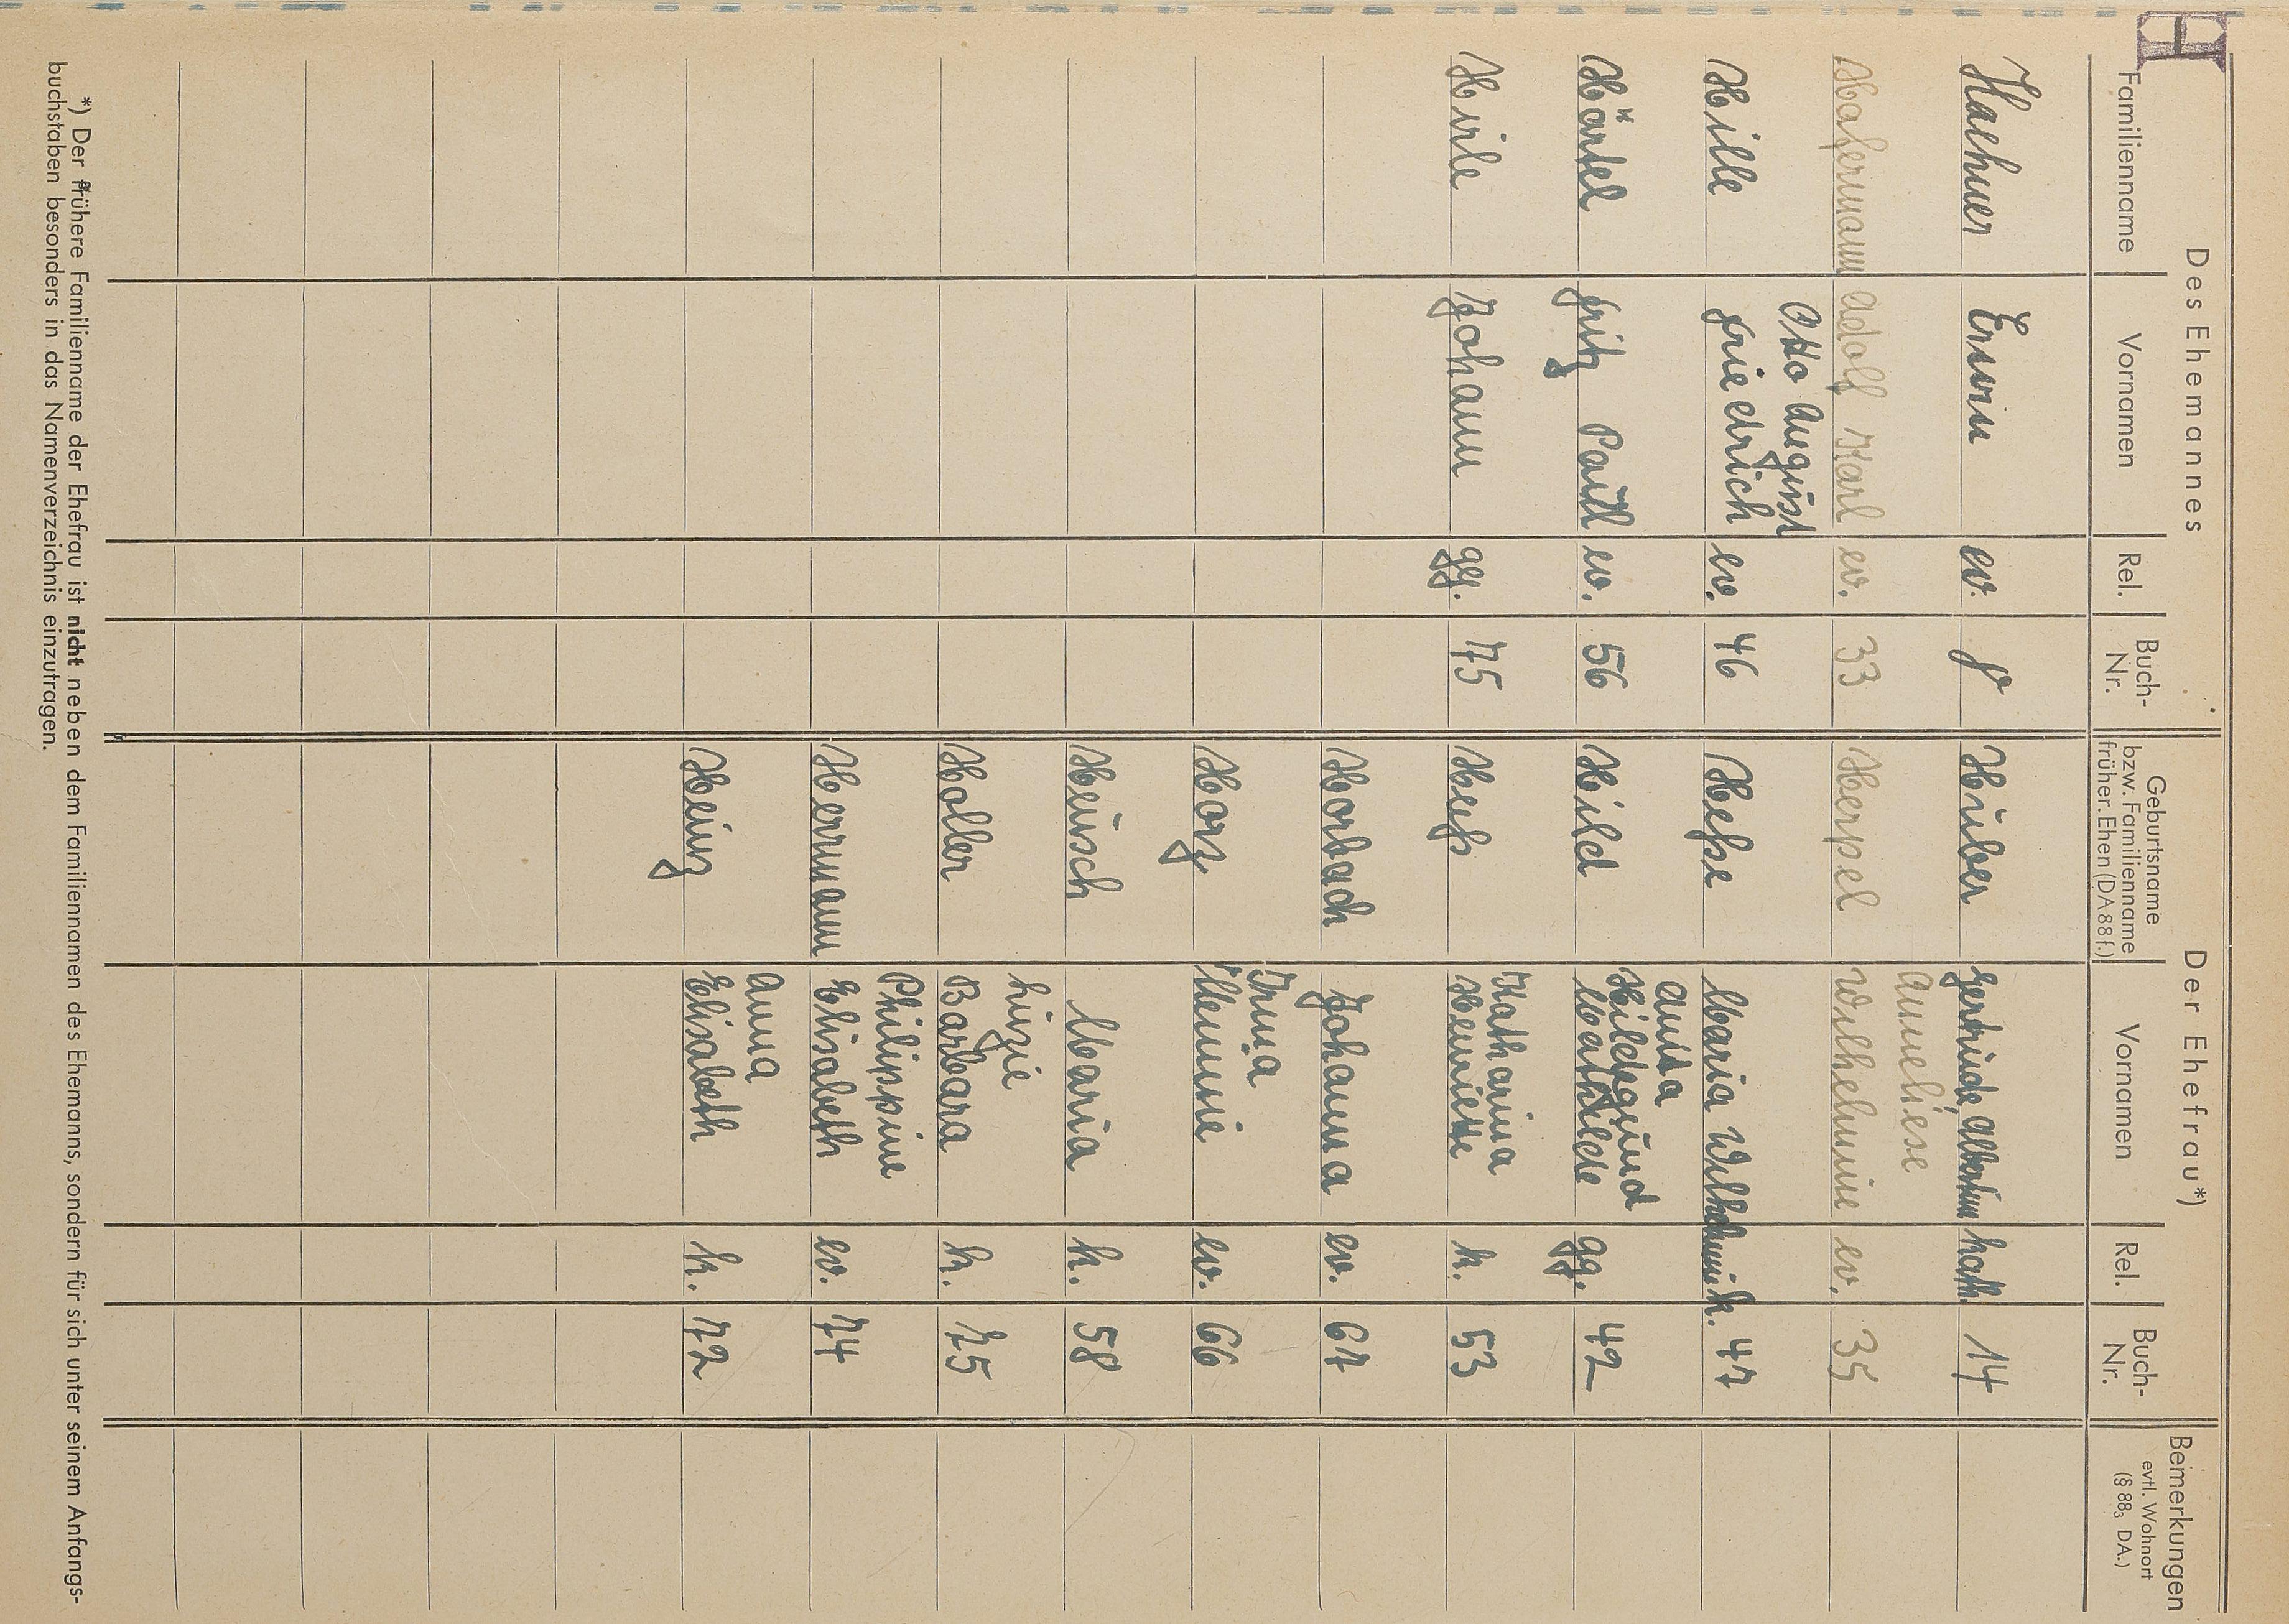 H
Des Ehemannes
Der Ehefrau*)
Bemerkungen
evtl. Wohnort
(§ 88₃ DA.)
Familienname
Vornamen
Rel.
Buch-
Nr.
Geburtsname
bzw. Familienname
früher. Ehen (DA 88 f.)
Vornamen
Rel.
Buch-
Nr.
Haehner Erwin ev. 8 Huber Gertrude Albertine kath. 14
Anneliese
Hafermann Adolf Karl ev. 33 Herpel Wilhelmine ev. 35
Otto August
Hille Friedrich ev. 46 Heße Maria Wilhelmine k. 47
Anita
Hildegund
Härtel Fritz Paul ev. 56 Hild Mathilde gg. 42
Katharina
Hirle Johann gg. 75 Heß Henriette k. 53
Horbach Johanna ev. 67
Irma
Horz Menni ev. 66
Heusch Maria k. 58
Luzie
Holler Barbara k. 75
Philippine
Herrmann Elisabeth ev. 74
Anna
Heinz Elisabeth k. 72
*) Der frühere Familienname der Ehefrau ist nicht neben dem Familiennamen des Ehemanns, sondern für sich unter seinem Anfangs-
buchstaben besonders in das Namenverzeichnis einzutragen.